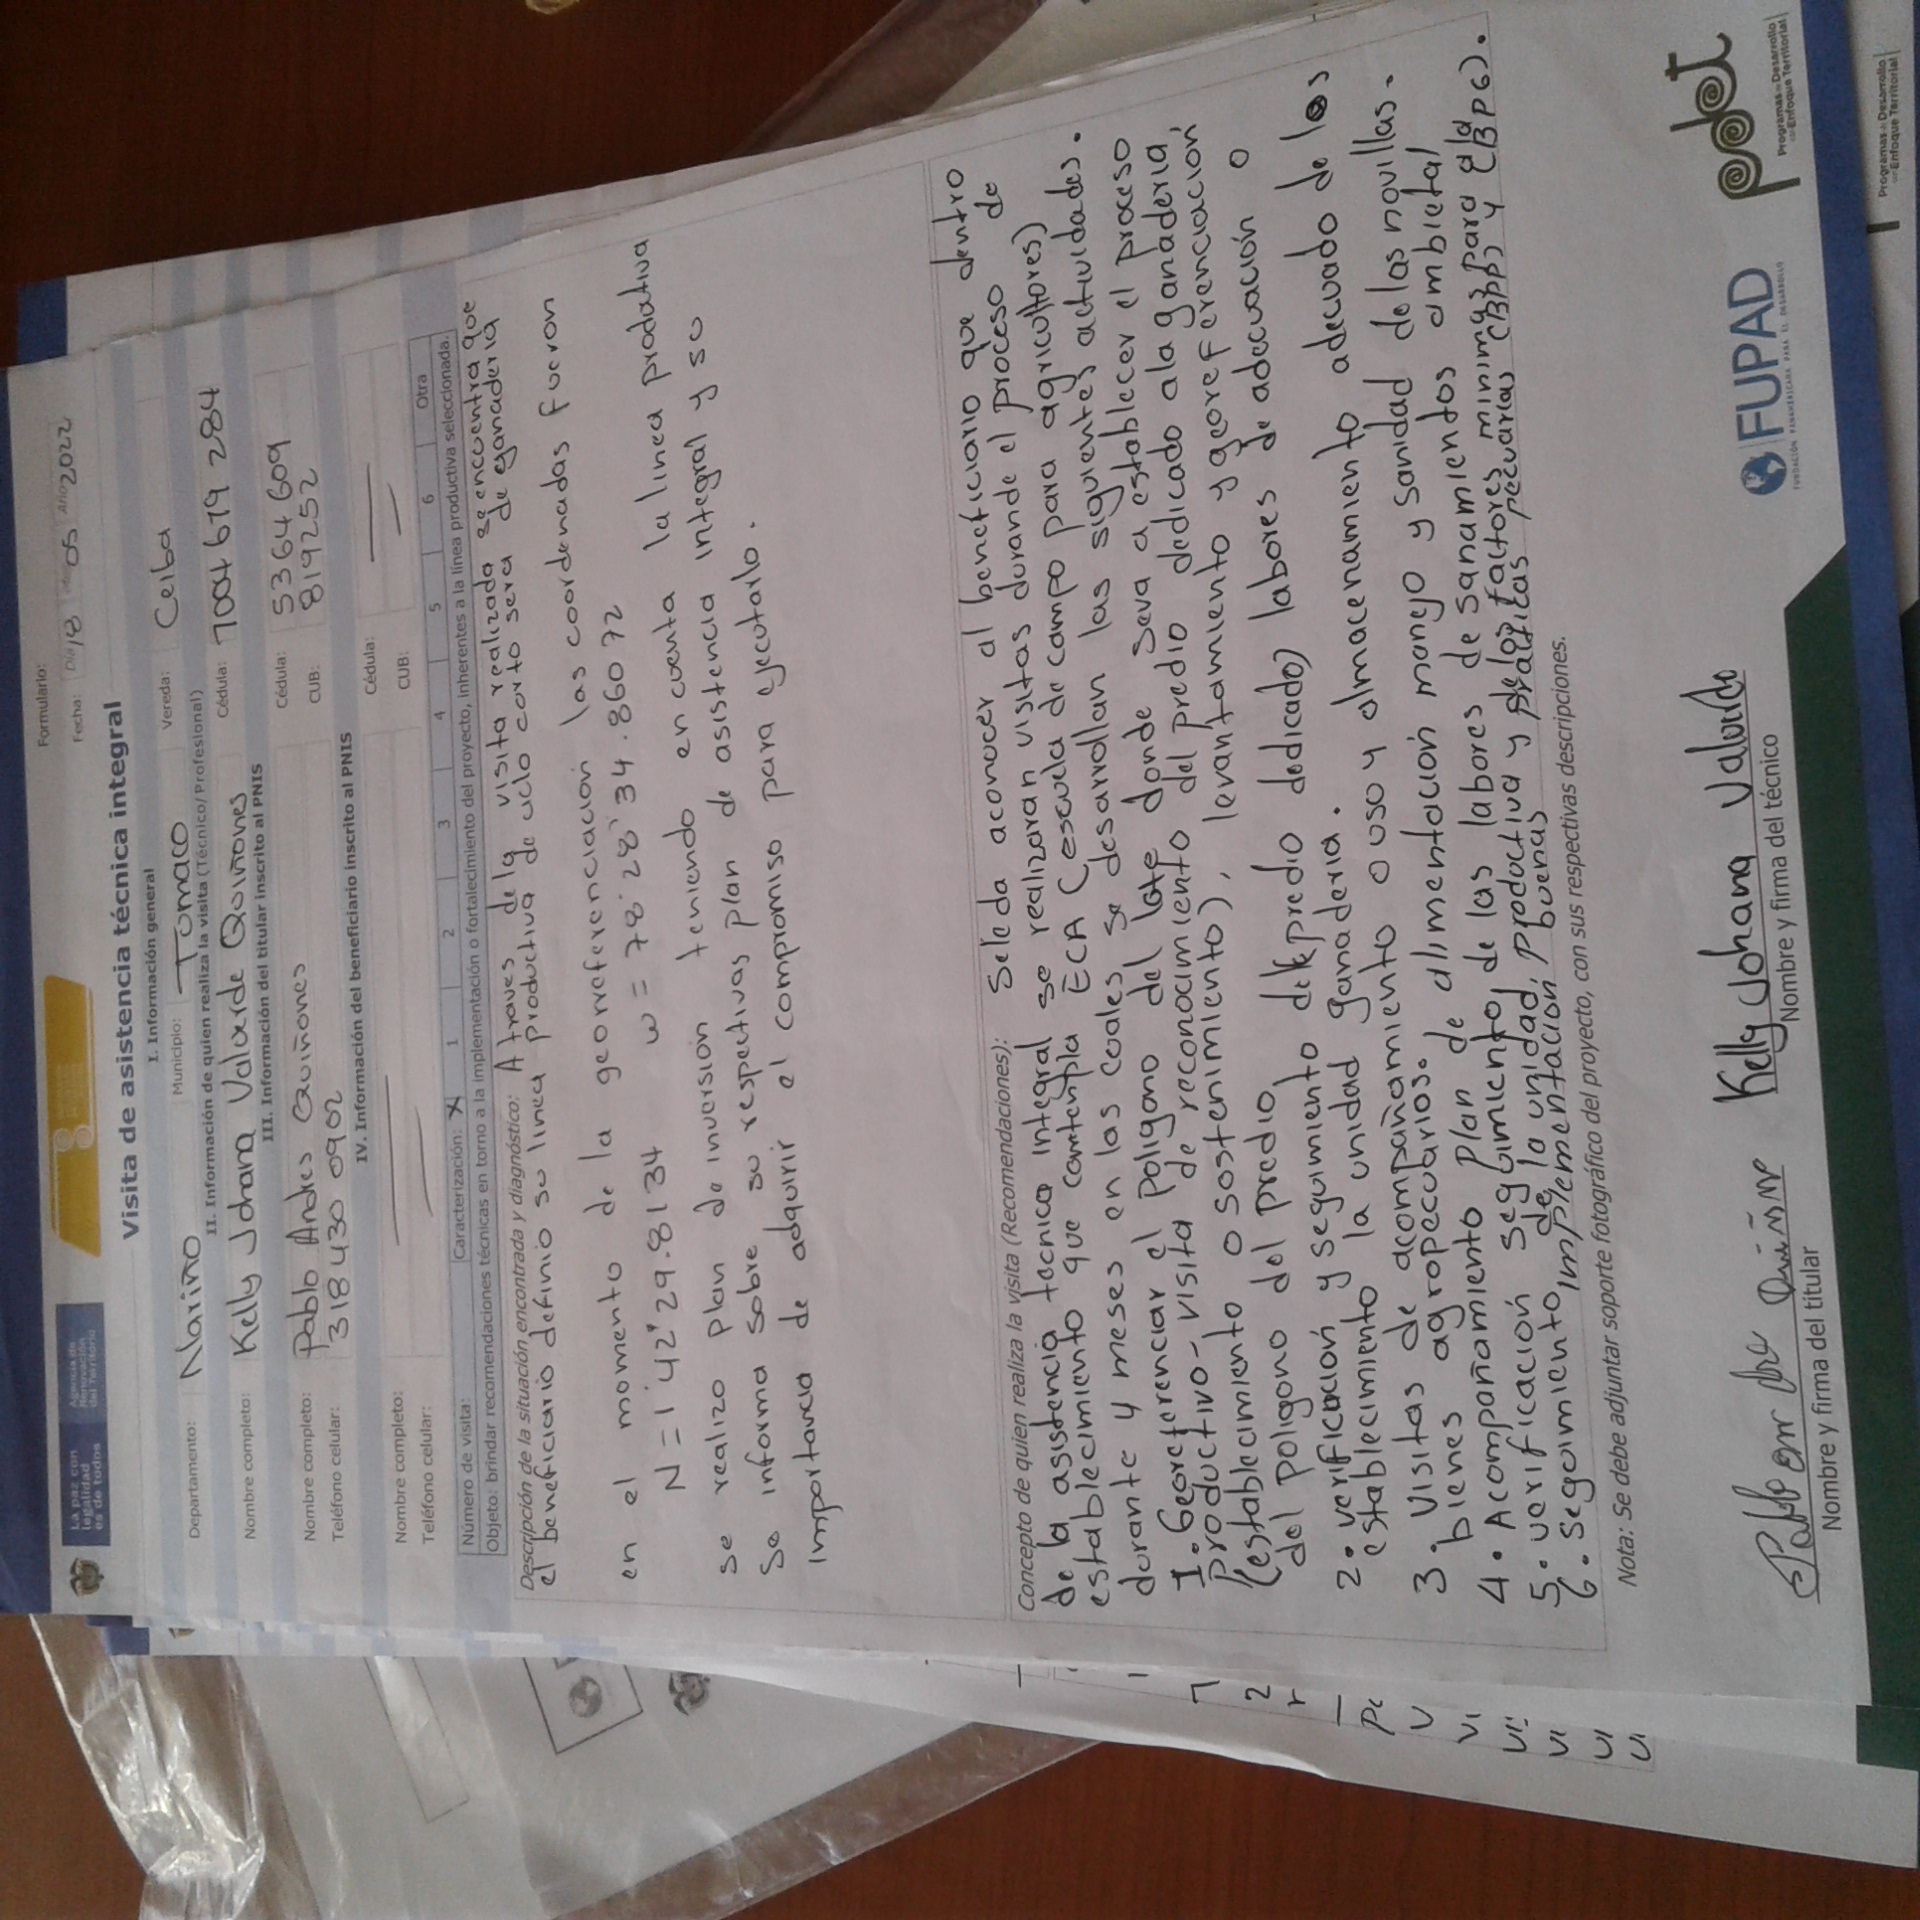 La paz con
legalidad
es de todos
Agencia de
Renovación
del Territorio
Formulario:
Fecha: Día 18 05 Año 2022
Visita de asistencia técnica integral
I. Información general
Departamento: Nariño Municipio: Tumaco Vereda: Ceiba
II. Información de quien realiza la visita (Técnico/Profesional)
Nombre completo: Kelly Johana Valverde Quiñones Cédula: 1004 679 284
III. Información del titular inscrito al PNIS
Nombre completo: Pablo Andres Quiñones Cédula: 5364609
Teléfono celular: 318 430 0902 CUB: 819252
IV. Información del beneficiario inscrito al PNIS
Nombre completo: Cédula:
Teléfono celular: CUB:
Número de visita: Caracterización: X 1 2 3 4 5 6 Otra
Objeto: brindar recomendaciones técnicas en torno a la implementación o fortalecimiento del proyecto, inherentes a la línea productiva seleccionada.
Descripción de la situación encontrada y diagnóstico: A traves de la visita realizada se encuentra que
el beneficiario definio su linea productiva de ciclo corto sera de ganaderia
en el momento de la georreferenciación las coordenadas fueron
N = 1°42'29.8134 w = 78°28'34.86072
se realizo plan de inversión teniendo en cuenta la linea productiva
se informa sobre su respectivas plan de asistencia integral y su
importancia de adquirir el compromiso para ejecutarlo.
Concepto de quien realiza la visita (Recomendaciones): Se le da aconocer al beneficiario que dentro
de la asistencia tecnica integral se realizaran visitas durande el proceso de
establecimiento que comtempla ECA (escuela de campo para agricultores)
durante 4 meses en las cuales se desarrollan las siguientes actividades.
1. Georeferenciar el poligono del lote donde seva a establecer el proceso
productivo - visita de reconocimiento del predio dedicado ala ganaderia,
(establecimiento o sostenimiento), levantamiento y georeferenciación
del poligono del predio
2. verificación y seguimiento del predio dedicado) labores de adecuación o
establecimiento la unidad ganaderia.
3. visitas de acompañamiento o uso y almacenamiento adecuado de los
bienes agropecuarios.
4. Acompañamiento plan de alimentación manejo y sanidad de las novillas.
5. verificación seguimiento, de las labores de sanamientos ambietal
6. seguimiento, de la unidad, productiva y de los factores minimos para la
implementación, buenas praticas pecuarias (BPP) y (BPG).
Nota: Se debe adjuntar soporte fotográfico del proyecto, con sus respectivas descripciones.
Kelly Johana Valverde
Nombre y firma del titular
Nombre y firma del técnico
FUPAD
FUNDACIÓN PANAMERICANA PARA EL DESARROLLO
pdet
Programas de Desarrollo
con Enfoque Territorial
Programas de Desarrollo
con Enfoque Territorial